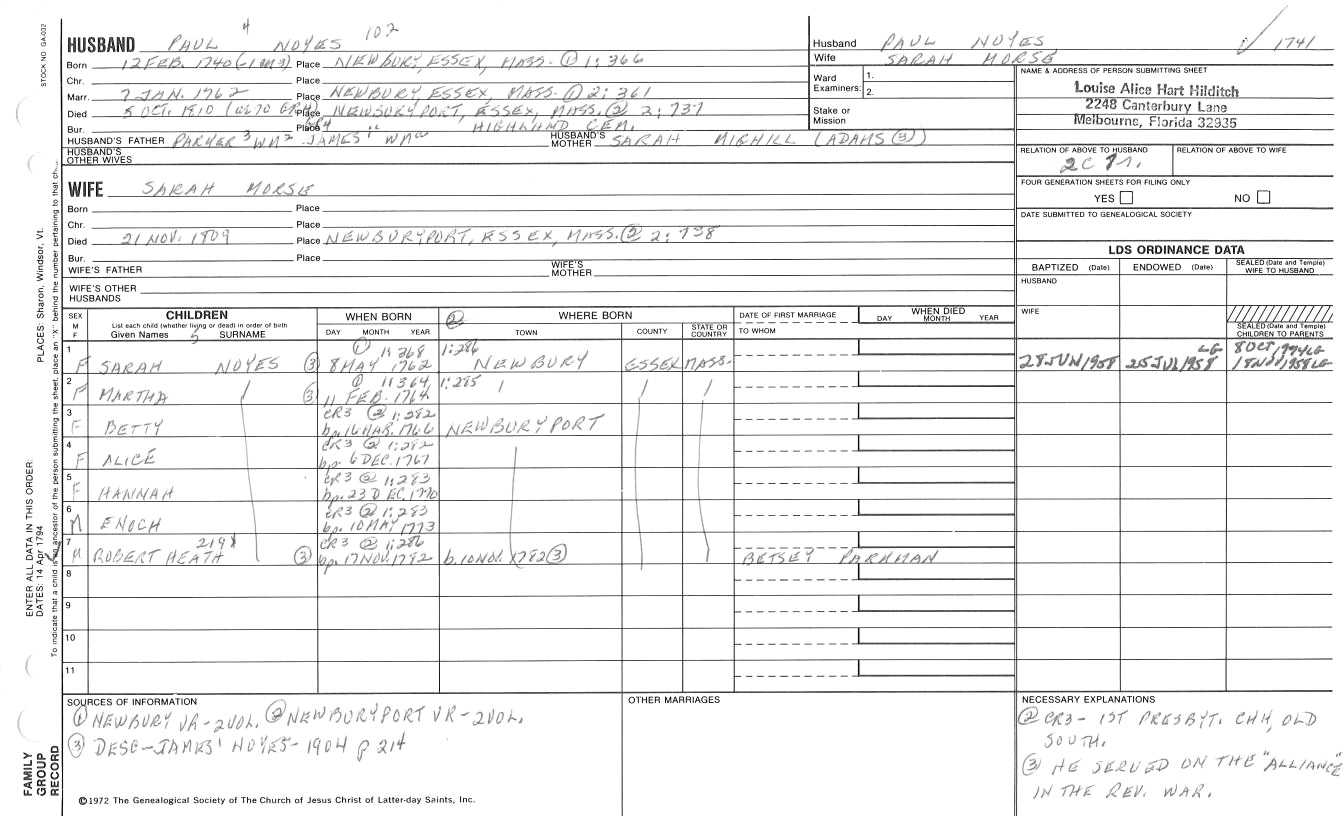 STOCK NO. GA-002
PLACES: Sharon, Windsor, Vt.
ENTER ALL DATA IN THIS ORDER:
DATES: 14 Apr 1794
FAMILY GROUP RECORD
HUSBAND PAUL 4 NOYES 102
Born 12 FEB. 1740 Place NEWBURY, ESSEX, MASS. ① 1:366
Chr. Place
Marr. 7 JAN. 1762 Place NEWBURY, ESSEX, MASS. ① 2:361
Died 5 OCT. 1810 Place NEWBURYPORT, ESSEX, MASS. ② 2:737
Bur. Place HIGHLAND CEM.
HUSBAND'S FATHER PARKER 3 WM 2 JAMES 1 WM HUSBAND'S MOTHER SARAH MIGHILL (ADAMS ③)
HUSBAND'S OTHER WIVES
Husband PAUL NOYES 1741
Wife SARAH MORSE
Ward 1.
Examiners: 2.
Stake or
Mission
NAME & ADDRESS OF PERSON SUBMITTING SHEET
Louise Alice Hart Hilditch
2248 Canterbury Lane
Melbourne, Florida 32935
RELATION OF ABOVE TO HUSBAND RELATION OF ABOVE TO WIFE
2C
FOUR GENERATION SHEETS FOR FILING ONLY
YES NO
DATE SUBMITTED TO GENEALOGICAL SOCIETY
WIFE SARAH MORSE
Born Place
Chr. Place
Died 21 NOV. 1809 Place NEWBURYPORT, ESSEX, MASS. ② 2:738
Bur. Place
WIFE'S FATHER WIFE'S MOTHER
WIFE'S OTHER HUSBANDS
LDS ORDINANCE DATA
BAPTIZED (Date) ENDOWED (Date) SEALED (Date and Temple) WIFE TO HUSBAND
HUSBAND
WIFE
SEALED (Date and Temple) CHILDREN TO PARENTS
SEX M F CHILDREN WHEN BORN ② WHERE BORN DATE OF FIRST MARRIAGE WHEN DIED
List each child (whether living or dead) in order of birth
Given Names 5 SURNAME DAY MONTH YEAR TOWN COUNTY STATE OR COUNTRY TO WHOM DAY MONTH YEAR
① 1:268 1:286
1 F SARAH NOYES ③ 8 MAY 1762 NEWBURY ESSEX MASS. 28 JUN 1958 25 JUL 1958 LG 18 NOV 1958 LG
① 1:364 1:285
2 F MARTHA ③ 11 FEB. 1764
CR3 ② 1:282
3 F BETTY bp. 16 MAR. 1766 NEWBURYPORT
CR3 ② 1:282
4 F ALICE bp. 6 DEC. 1767
CR3 ② 1:283
5 F HANNAH bp. 23 DEC. 1770
CR3 ② 1:283
6 M ENOCH bp. 10 MAY 1773
CR3 ② 1:286
7 M ROBERT HEATH ③ bp. 17 NOV. 1782 b. 10 NOV. 1782 ③ BETSEY PARKMAN
8
9
10
11
SOURCES OF INFORMATION
① NEWBURY VR - 2 VOL. ② NEWBURYPORT VR - 2 VOL.
③ DESC - JAMES' NOYES - 1904 p 214
OTHER MARRIAGES
NECESSARY EXPLANATIONS
② CR3 - 1ST PRESBYT. CHH, OLD
SOUTH.
③ HE SERVED ON THE "ALLIANCE"
IN THE REV. WAR.
©1972 The Genealogical Society of The Church of Jesus Christ of Latter-day Saints, Inc.